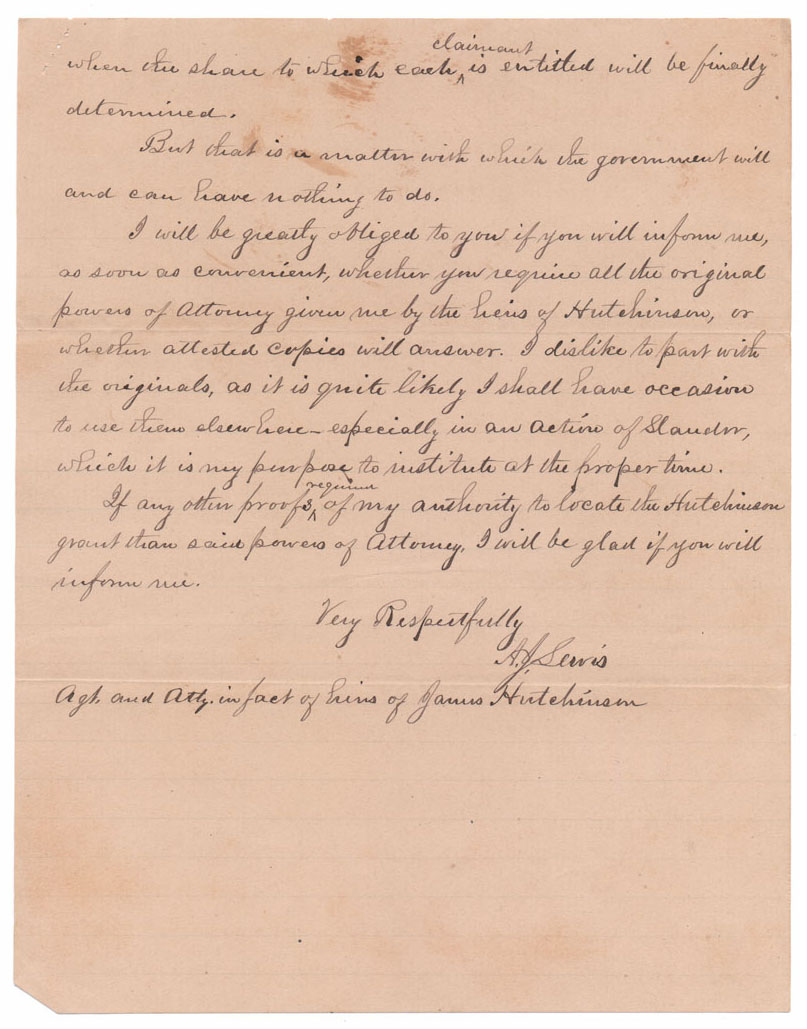 when the share to which each ^claimant is entitled will be finally
determined.
But that is a matter with which the government will
and can have nothing to do.
I will be greatly obliged to you if you will inform me,
as soon as convenient, whether you require all the original
powers of Attorney given me by the heirs of Hutchinson, or
whether attested copies will answer. I dislike to part with
the originals, as it is quite likely I shall have occasion
to use them elsewhere – especially in an action of Slander,
which it is my purpose to institute at the proper time.
If any other proofs ^required of my authority to locate the Hutchinson
grant than said powers of Attorney, I will be glad if you will
inform me.
Very Respectfully
A.J. Lewis
Agt. and Atty. in fact of heirs of James Hutchinson